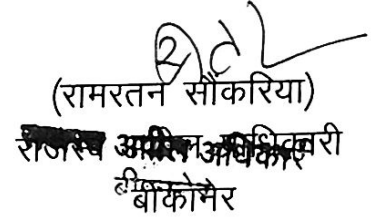 (रामरतन सौंकरिया)
राजस्व अपील अधिकारी
बीकानेर